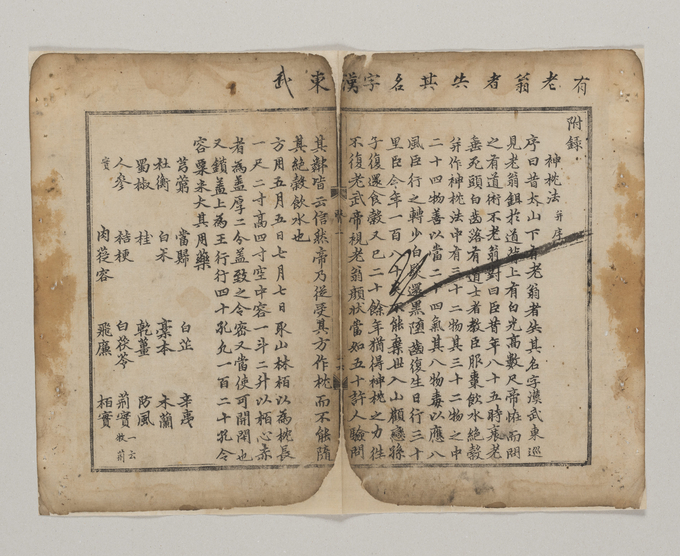 有老翁者失其名字漢東武
附錄
神枕法 并序
序曰昔太山下有老翁者失其名字漢武東巡
見老翁鉏於道上有白光高數尺帝恠而問
之有道術不老翁對曰臣昔年八十五時衰老
垂死頭白齒落有道士者教臣服棗飮水絶穀
幷作神枕法中有三十二物其三十二物之中
二十四物善以當二十四氣其八物毒以應八
風臣行之轉少白髮還黑墮齒復生日行三十
里臣今年一百八十矣不能棄世入山顧戀孫
子復還食穀又已二十餘年猶得神枕之力徃
不復老武帝視老翁顔狀當如五十許人驗問
其隣皆云信然帝乃從受其方作枕而不能隨
其絶穀飮水也
方用五月五日七月七日取山林栢以爲枕長
一尺二寸高四寸空中容一斗二升以栢心赤
者爲盖厚二分盖致之令密又當使可開閉也
又鑽盖上爲三行行四十孔凡一百二十孔令
容粟米大其用藥
芎藭 當歸 白芷 辛夷
杜衡 白朮 藁本 木蘭
蜀椒 桂 乾薑 防風
人參 桔梗 白茯苓 荊實 一云牧荊
實 肉蓯容 飛廉 栢實